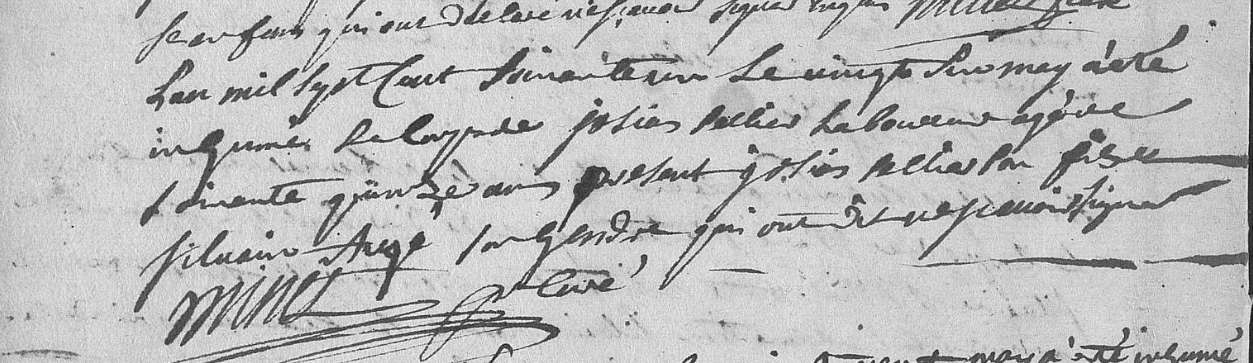 se enfans qui ont declaré ne sçavoir signer
Lan mil sept Cent soixante un le vingt sino may a été
inhumé le Corps de josias pellier Laboureur agé de
soixante quinze ans present josias pellier son fils
silvain Augé son Gendre qui ont dit ne sçavoir signer
Minet Curé
may a été inhumé